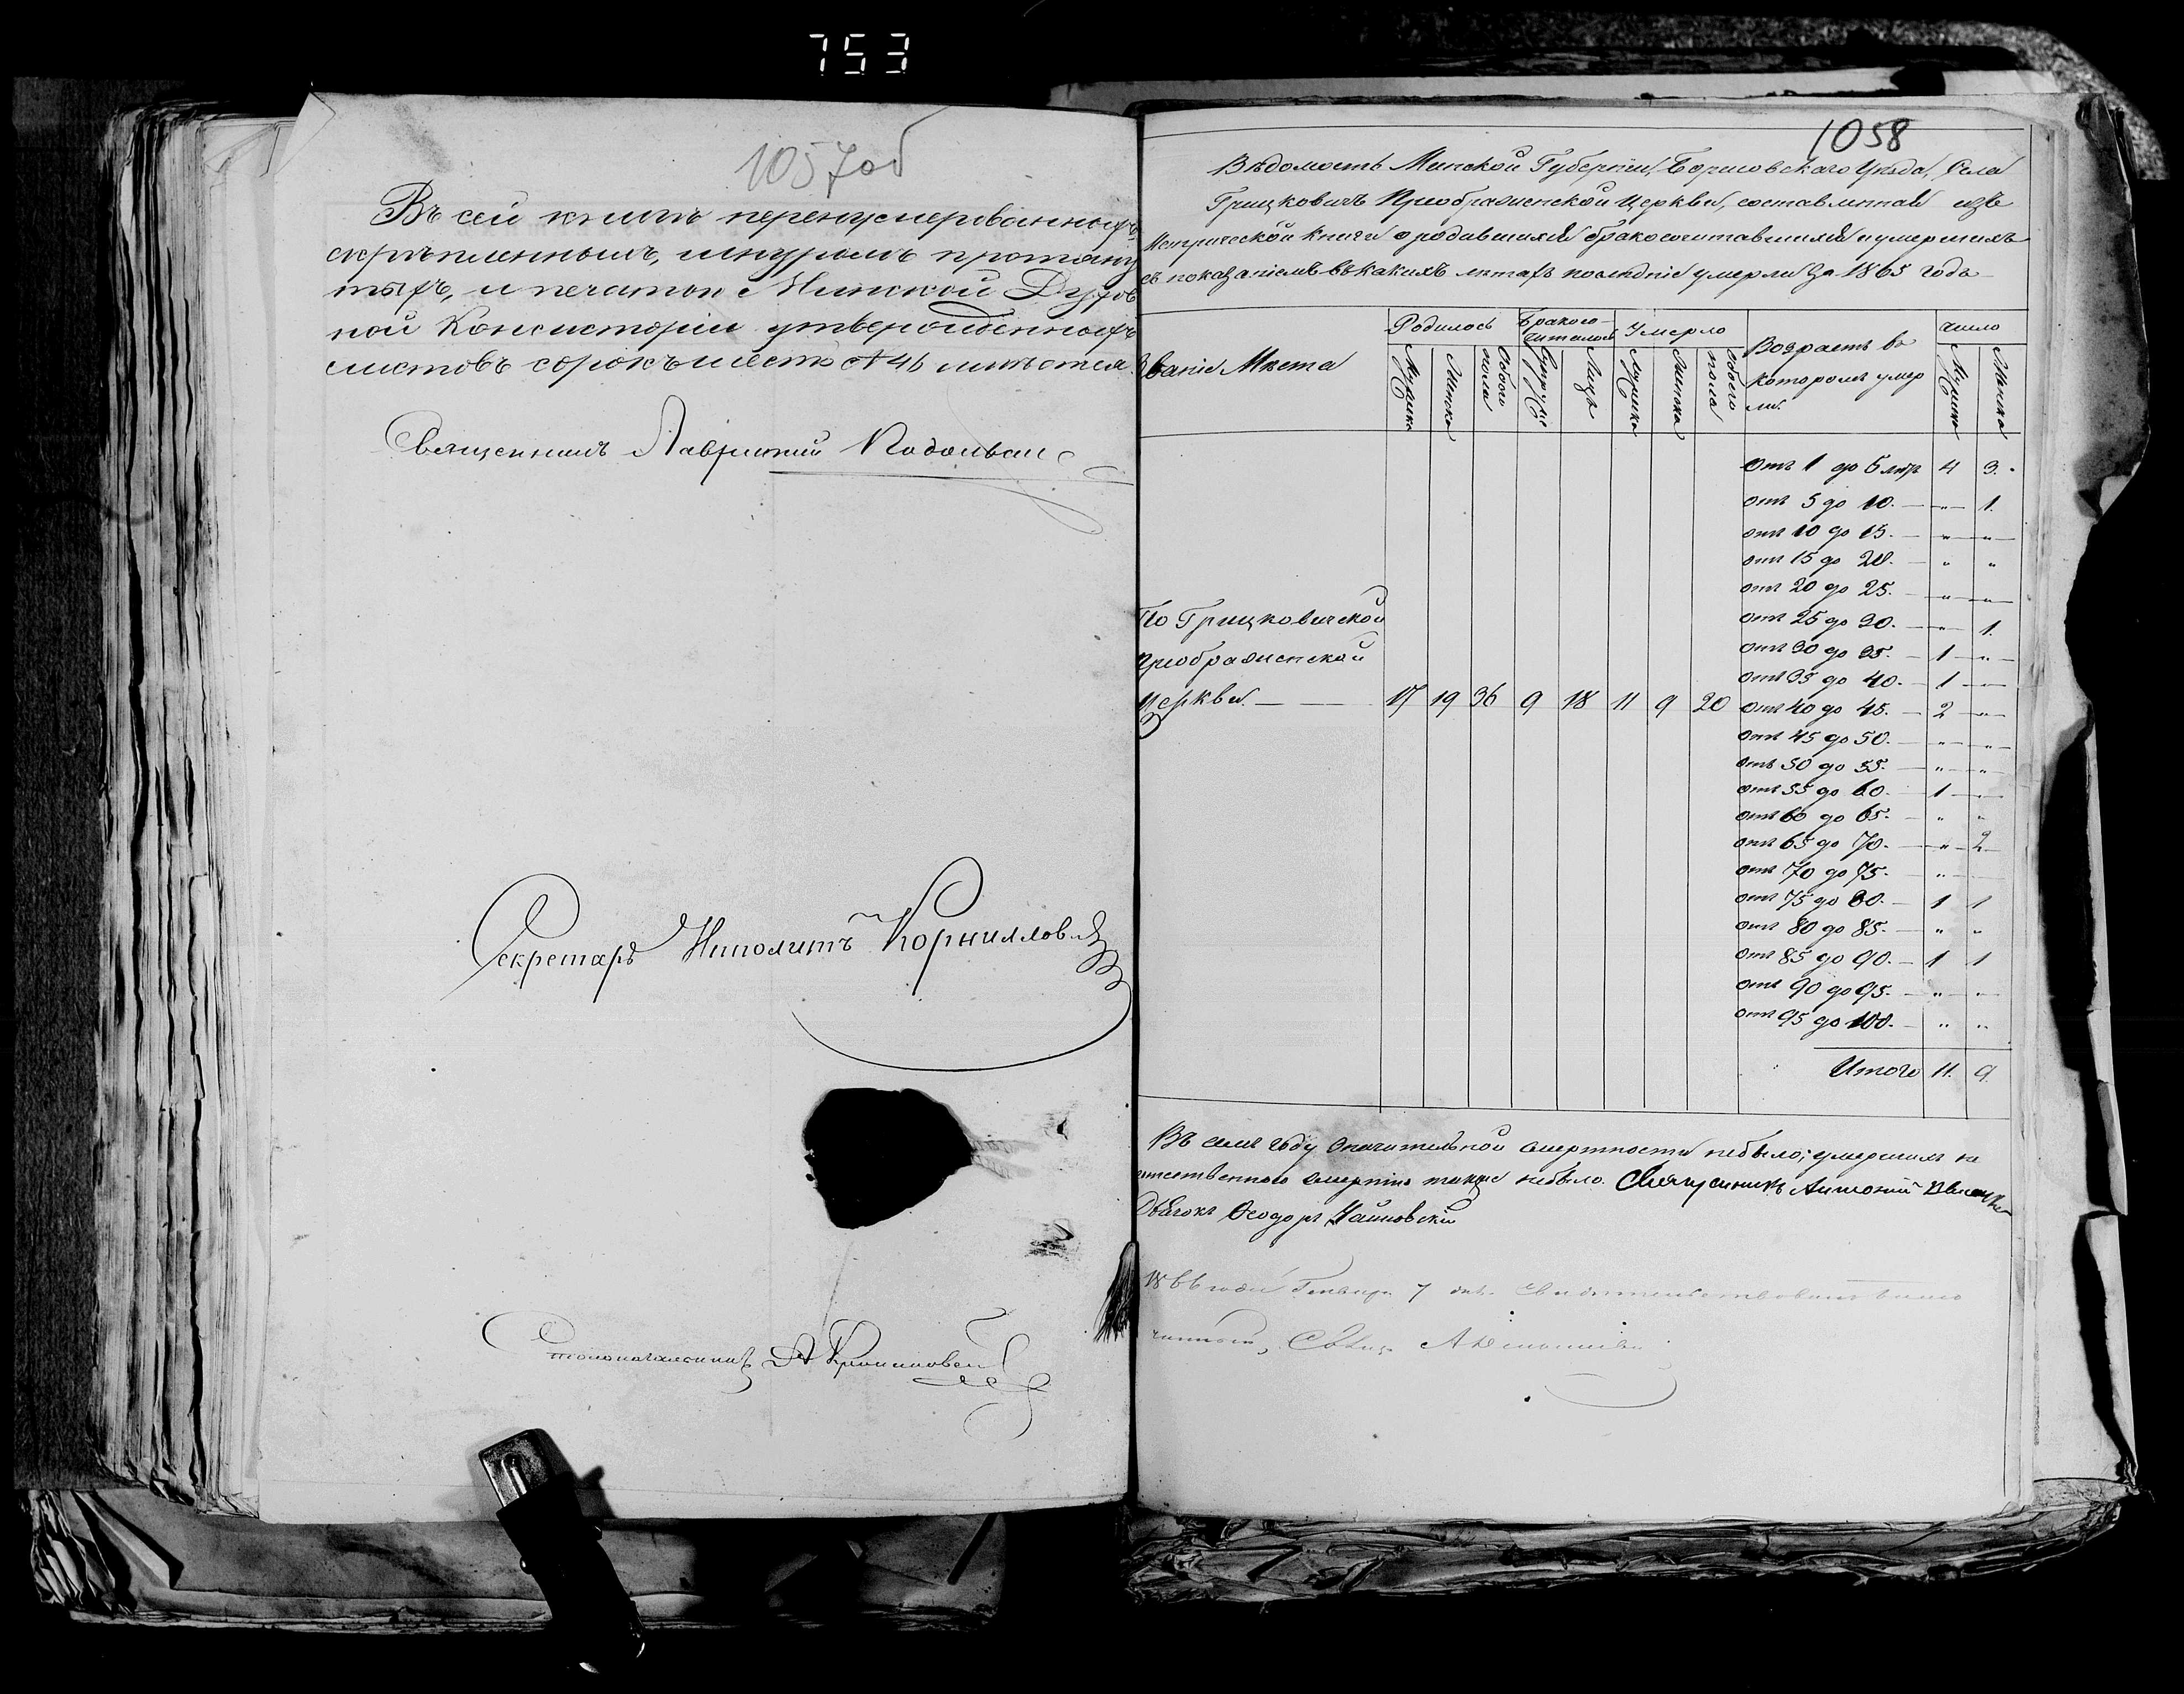 753
1057об
Въ сей книгѣ перенумерованныхъ,
скрѣпленныхъ, шнуромъ протяну
тыхъ, и печатью Минской Духов
ной Консисторіи утвержденныхъ
листовъ сорокъ шесть № 46 имѣется.
Священникъ Лаврентій
Секретарь Иполитъ Корниллов
Столоначальникъ
1058
Вѣдомость Минской Губерніи, Борисовскаго Уѣзда, Села
Грицковичъ Преображенской Церкви, составленная изъ
Метрической Книги о родившихся бракосочитавшихся и умершихъ
съ показаніемъ въ какихъ лѣтахъ послѣдніе умерли за 1865 годъ
Званіе Мѣста
Родилось
Бракосо-
читалось
Умерло
Возрастъ въ
которомъ умер
ли.
число
Мужеска
Женска
Обоего
пола
Супруж
Лицъ
Мужеска
Женска
Обоего
пола
Мужеска
Женска
Отъ 1 до 5 лѣтъ 4 3.
отъ 5 до 10. — „ — 1.
отъ 10 до 15. — „ — „
отъ 15 до 20. — „ „
отъ 20 до 25. — „ — „
отъ 25 до 30. — „ — 1.
отъ 30 до 35. — 1 — „
отъ 35 до 40. — 1 — „
отъ 40 до 45. — 2 — „
отъ 45 до 50. — „ — „
отъ 50 до 55. — „ — „
отъ 55 до 60. — 1 — „
отъ 60 до 65. — „ „
отъ 65 до 70. — „ — 2
отъ 70 до 75. — „
отъ 75 до 80. — 1 1
отъ 80 до 85. — „ „
отъ 85 до 90. — 1 1
отъ 90 до 95. — „ — „
отъ 95 до 100. — „ „
Итого 11. 9.
По Грицковичской
Преображенской
Церкви. — — 17 19 36 9 18 11 9 20
Въ семъ году значительной смертности небыло; умершихъ не
естественною смертію также небыло. Священникъ Антоній
Дьячокъ Ѳеодоръ
1866 года Генваря 7 дня свидѣтельствовано